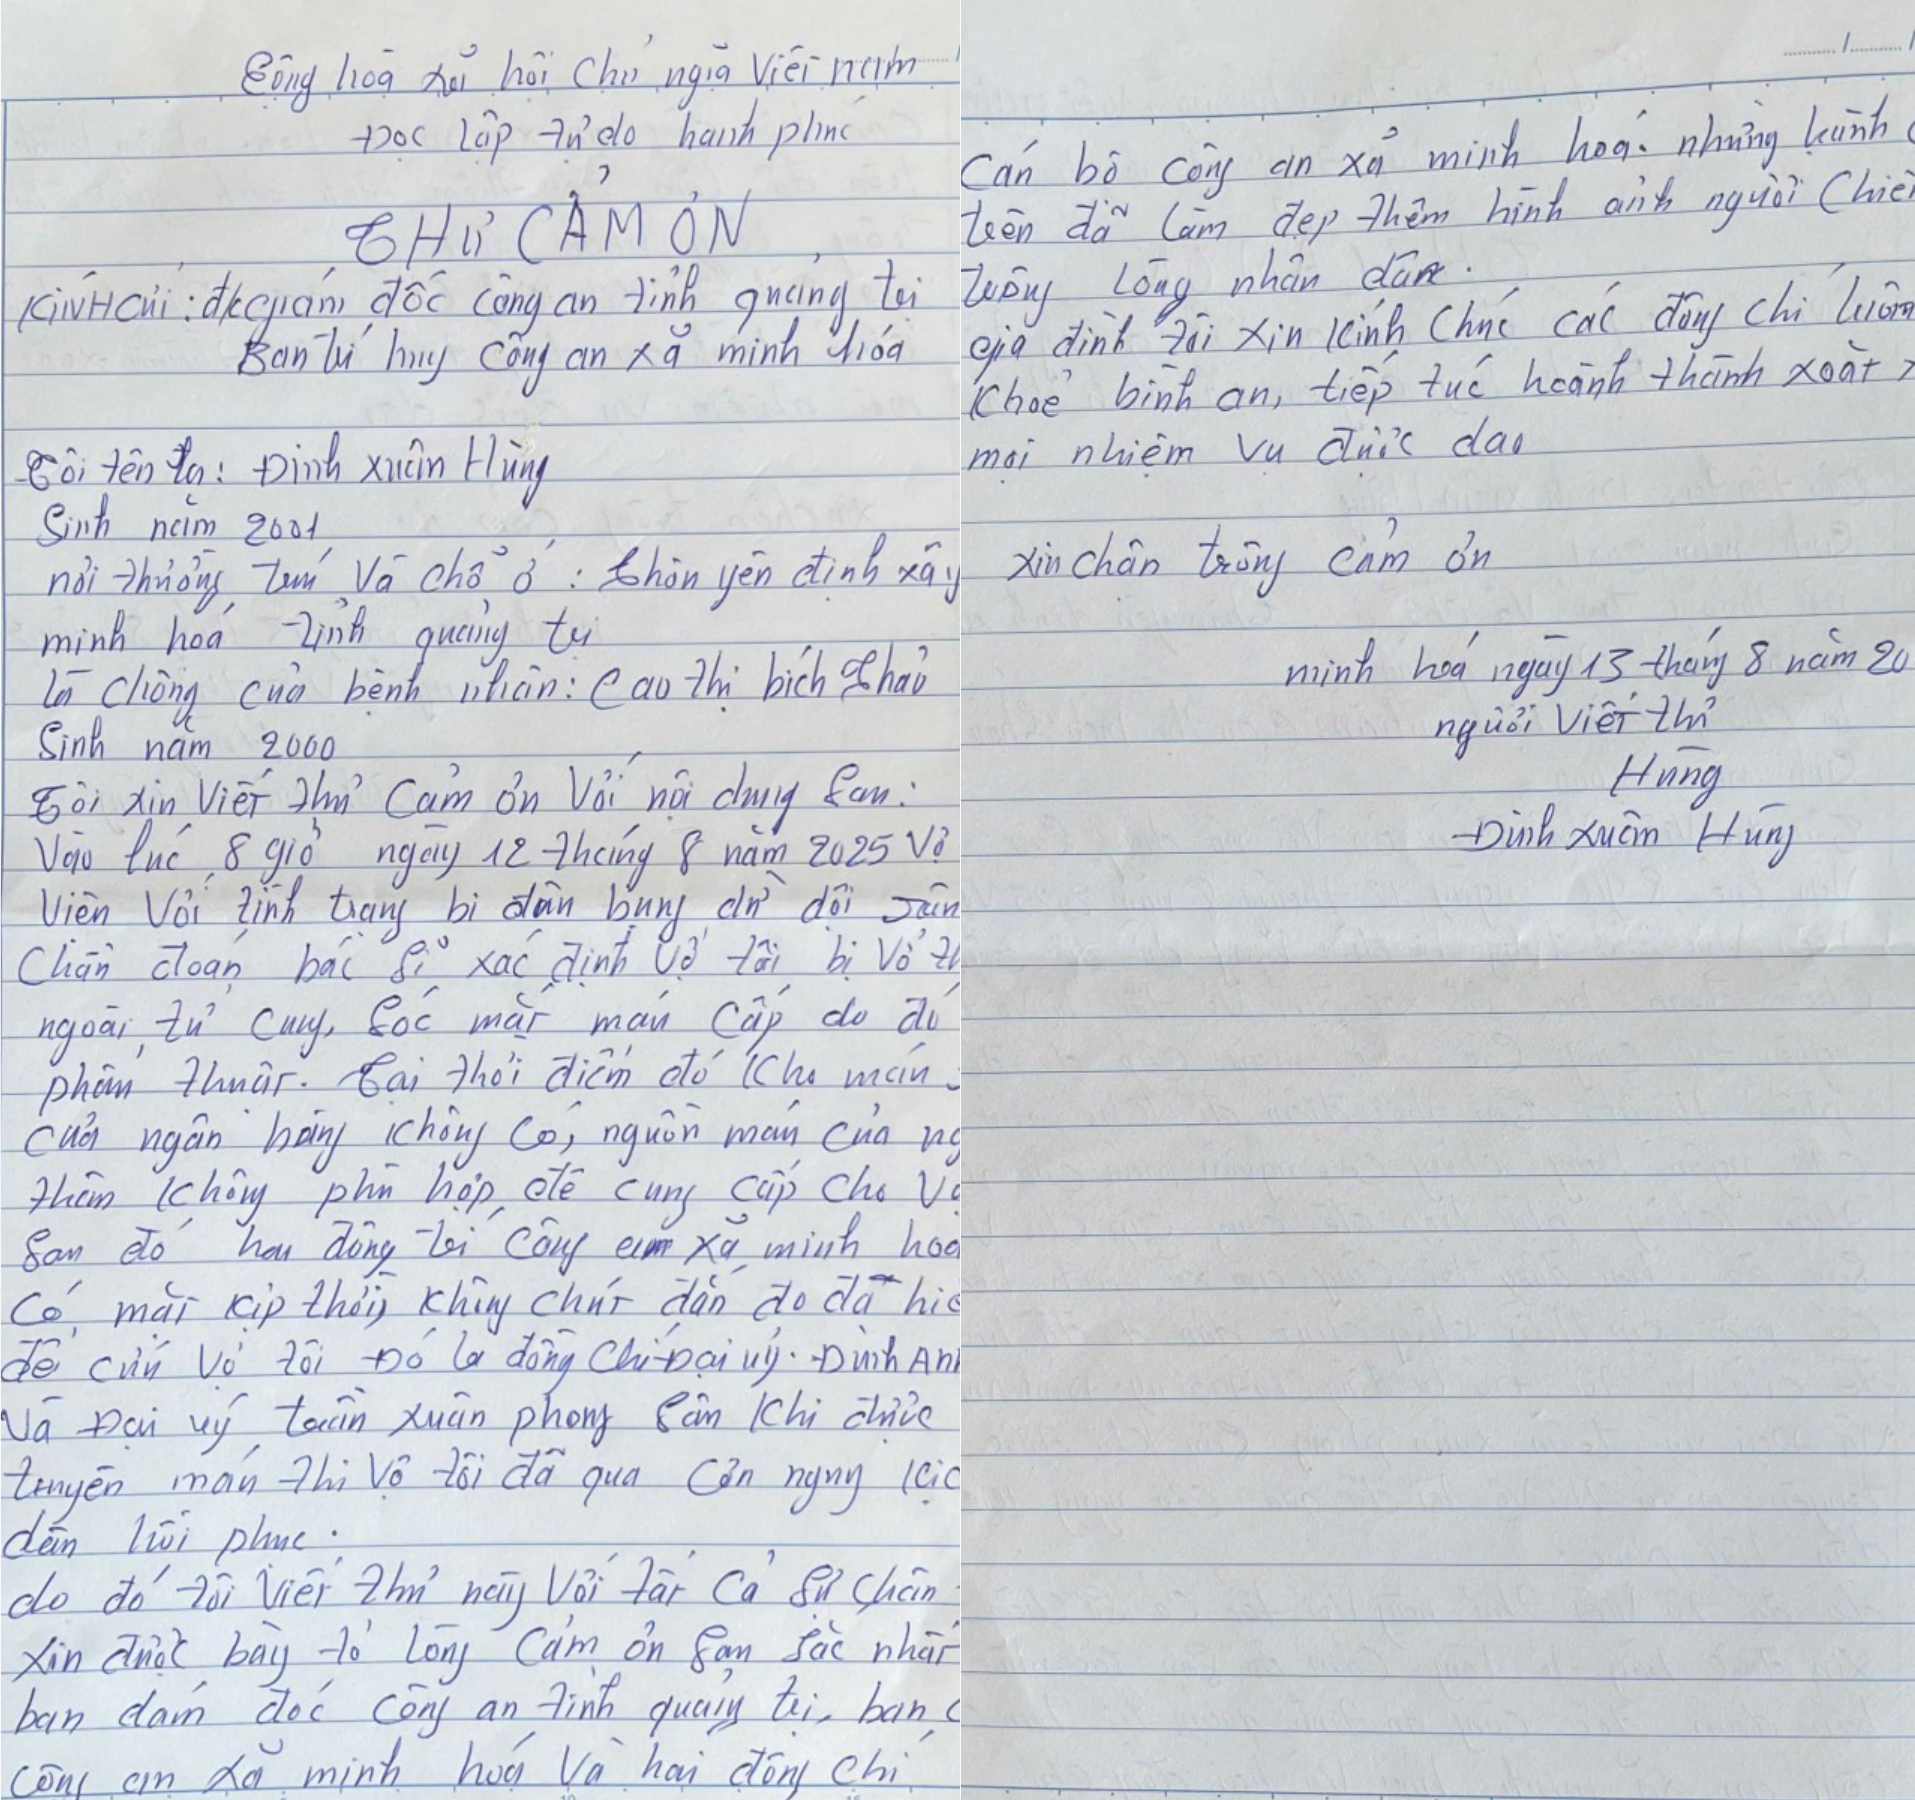 Công hoà xã hội Chủ ngiã Việt nam
Đọc lập tự do hanh phúc
THƯ CẢM ƠN
KíNH Gửi: đ/c giám đốc công an tỉnh quảng trị
Ban chỉ huy công an xã minh hóa
Tôi tên là: Đinh xuân Hùng
Sinh năm 2001
nơi thường trú Và chỗ ở: thôn yên định xã y
minh hoá tỉnh quảng trị
là chồng của bệnh nhân: Cao thị bích thảo
Sinh năm 2000
Tôi xin Viết thư Cảm ơn Với nội dung sau:
Vào lúc 8 giờ ngày 12 tháng 8 năm 2025 Vợ
Viên Với tình trạng bị đân bụng dữ dội
Chẩn đoán bác sĩ xác định Vợ tôi bị Vỡ th
ngoài tử cung, sốc mất máu Cấp do đó
phẩm thuật. Tại thời điểm đó kho máu
của ngân hàng không có, nguồn máu của ng
thân không phù hợp để cung cấp cho Vợ
sau đó hai đồng chí công an xã minh hoá
Có mặt kịp thời, không chút đắn đo đã hiế
để cứu Vợ tôi Đó là đồng Chí Đại uý. Đinh Anh
Và Đại uý trần xuân phong sân khi được
truyền máu thì Vợ tôi đã qua cơn nguy kịc
dần hồi phục.
do đó tôi Viết thư này Với tất cả sự chân
xin được bày tỏ lòng Cảm ơn sau sắc nhất
ban dám đốc công an tỉnh quảng trị, ban c
công an xã minh hoá Và hai đồng chí
Cán bộ công an xã minh hoá. những hành
trên đã làm đẹp thêm hình ảnh người Chiế
trong lòng nhân dân.
gia đình tôi xin kính Chúc các đồng chí luôn
Khoẻ bình an, tiếp tục hoành thành xoất
mọi nhiệm vụ được dao
xin chân trọng cảm ơn
minh hoá ngày 13 tháng 8 năm 20
người Viết thư
Hùng
Đinh xuân Hùng